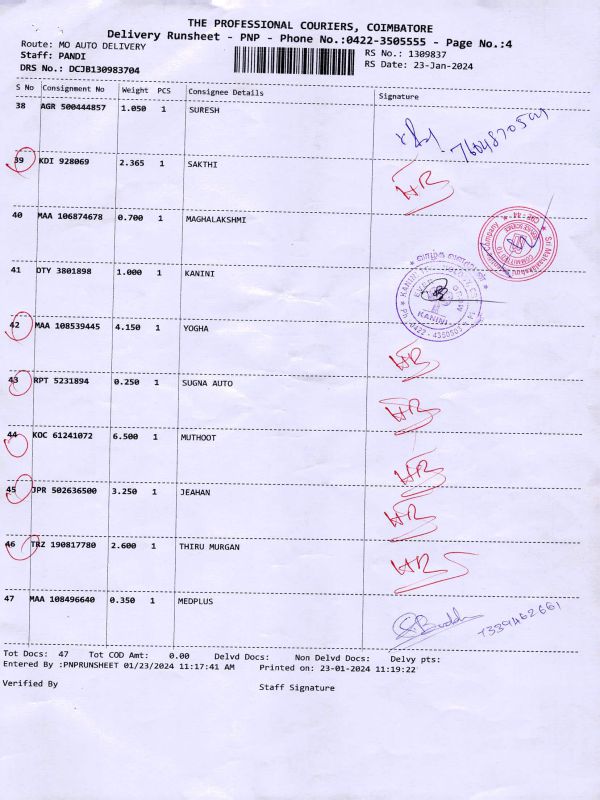 THE PROFESSIONAL COURIERS, COIMBATORE
Delivery Runsheet - PNP - Phone No.:0422-3505555 - Page No.:4
Route: MO AUTO DELIVERY RS No.: 1309837
Staff: PANDI RS Date: 23-Jan-2024
DRS No.: DCJB130983704
S No Consignment No Weight PCS Consignee Details Signature
38 AGR 500444857 1.050 1 SURESH
39 KDI 928069 2.365 1 SAKTHI HR
40 MAA 106874678 0.700 1 MAGHALAKSHMI
41 OTY 3801898 1.000 1 KANINI KANINI
42 MAA 108539445 4.150 1 YOGHA HR
43 RPT 5231894 0.250 1 SUGNA AUTO HR
44 KOC 61241072 6.500 1 MUTHOOT HR
45 JPR 502636500 3.250 1 JEAHAN HR
46 TRZ 190817780 2.600 1 THIRU MURGAN HR
47 MAA 108496640 0.350 1 MEDPLUS 7339462661
Tot Docs: 47 Tot COD Amt: 0.00 Delvd Docs: Non Delvd Docs: Delvy pts:
Entered By :PNPRUNSHEET 01/23/2024 11:17:41 AM Printed on: 23-01-2024 11:19:22
Verified By Staff Signature